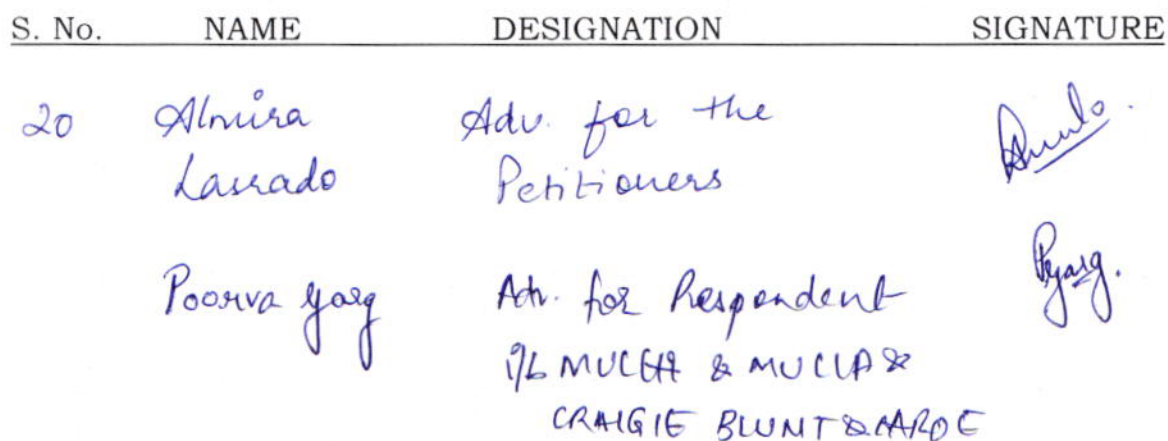 S. No. NAME DESIGNATION SIGNATURE
20 Almira Adv. for the
Lasrado Petitioners
Poorva Garg Adv. for Respondent
i/b MULLA & MULLA &
CRAIGIE BLUNT & CAROE